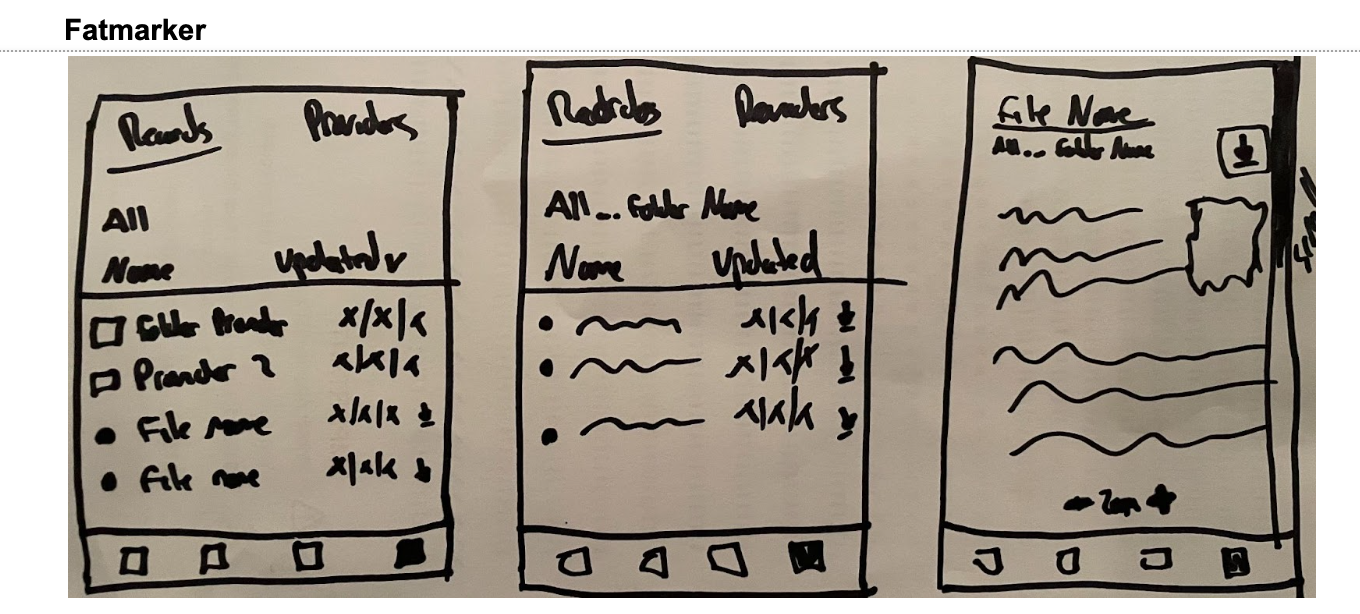 Fatmarker
Records Providers
All
Name Updated v
Folder Provider x/x/x
Provider 2 x/x/x
File name x/x/x
File name x/x/x
Records Providers
All ... Folder Name
Name Updated
x/x/x
x/x/x
x/x/x
File Name
All... Folder Name
- Zoom +